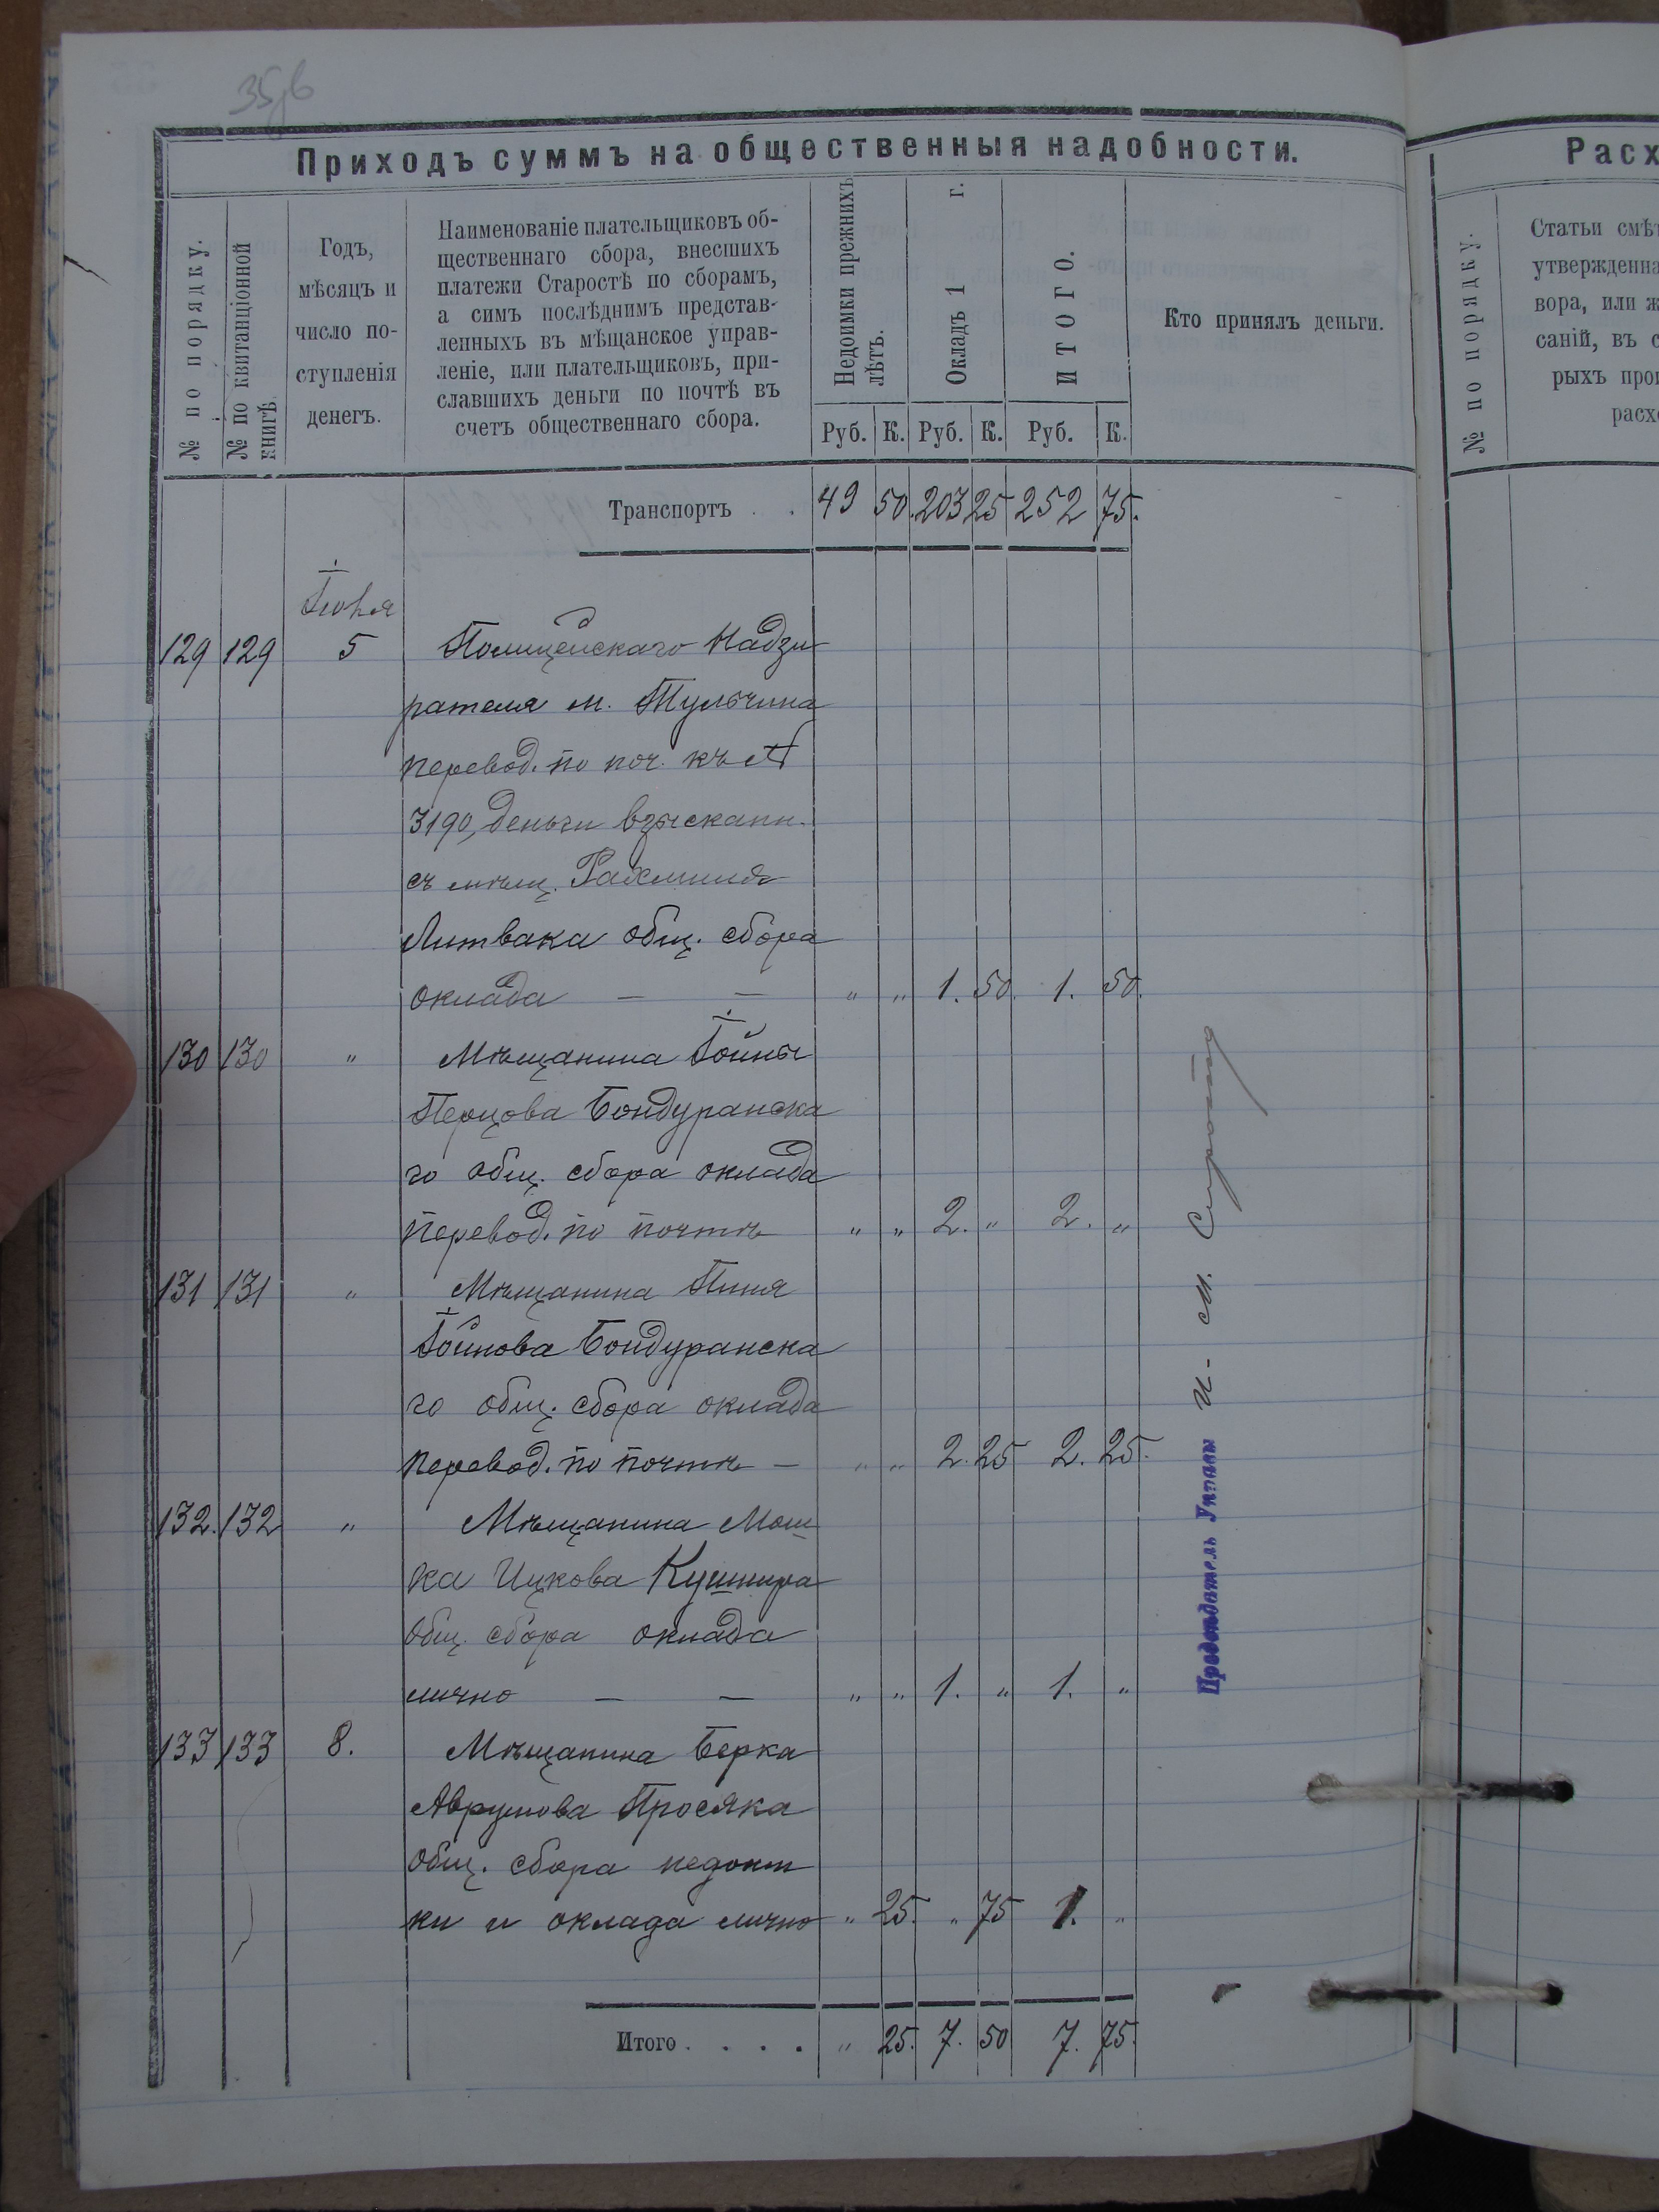 35/6
Приходъ суммъ на общественныя надобности.
№ по порядку.
№ по квитанціонной
книгѣ.
Годъ,
мѣсяцъ и
число по-
ступленія
денегъ.
Наименованіе плательщиковъ об-
щественнаго сбора, внесшихъ
платежи Старостѣ по сборамъ,
а симъ послѣднимъ представ-
ленныхъ въ мѣщанское управ-
леніе, или плательщиковъ, при-
славшихъ деньги по почтѣ въ
счетъ общественнаго сбора.
Недоимки прежнихъ
лѣтъ.
Окладъ 1 г.
ИТОГО.
Кто принялъ деньги.
Руб. К. Руб. К. Руб. К.
Транспортъ . . 49 50. 203 25 252 75.
Іюня
129 129 5 Полицейскаго Надзи
рателя м. Тульчина
перевод. по поч. къ №
3190, деньги взыскани.
съ мѣщ.
Литвака общ. сбора
оклада — — " " 1. 50. 1. 50.
130 130 " Мѣщанина Іойны
Перцова Бондуранска
го общ. сбора оклада
перевод. по почтѣ " " 2. " 2. "
131 131 " Мѣщанина Пиня
Іойнова Бондуранска
го общ. сбора оклада
перевод. по почтѣ — " " 2. 25 2. 25.
132. 132 " Мѣщанина Мош
ка Ицкова Кушнира
общ. сбора оклада
лично — — " " 1. " 1. "
133 133 8. Мѣщанина Берка
Аврумова Просяка
общ. сбора недоим
ки и оклада лично " 25. " 75 1. "
Итого . . . . " 25. 7. 50 7. 75.
Предсѣдатель Управы И. М.
Расх
№ по порядку.
Статьи смѣт
утвержденна
вора, или ж
саній, въ с
рыхъ прои
расхо